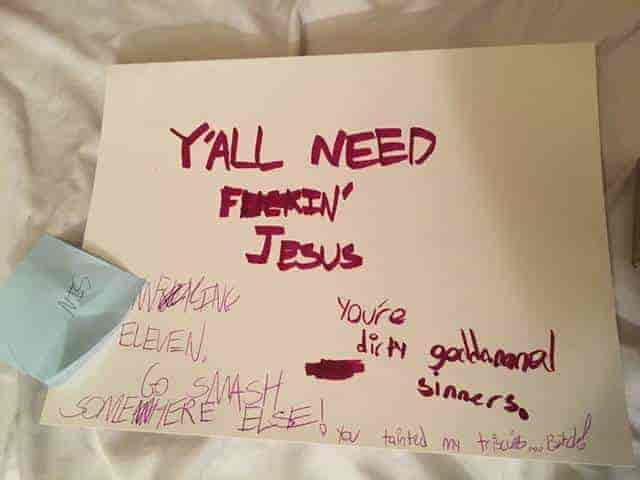 Y'ALL NEED
FUCKIN'
JESUS
SIN
ELEVEN,
GO SMASH
SOMEWHERE ELSE!
You're
dirty goddamned
sinners.
You tainted my